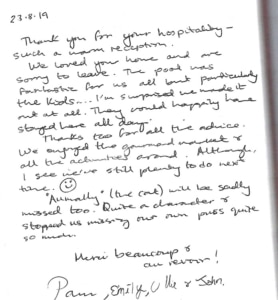 23-8-19
Thank you for your hospitality –
such a warm reception.
We loved you home and are
sorry to leave. The pool was
fantastic for us all but particularly
the kids.... I'm surprised we made it
out at all. They could happily have
stayed here all day.
Thanks too for all the advice.
We enjoyed the gourmad market &
all the activities around. Although,
I see we've still plenty to do next
time. ☺
" " (the cat) will be sadly
missed too. Quite a character &
stopped us missing our own puss quite
so much.
Merci beaucoup &
au revoir!
Pam, Emily, & John.